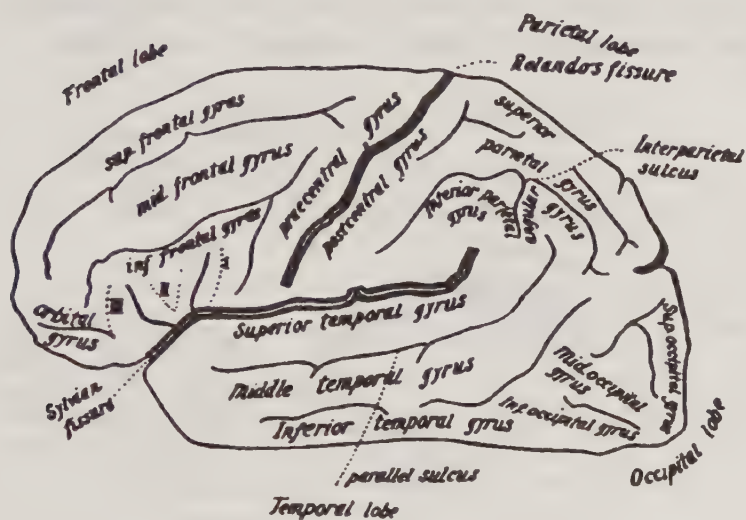 Frontal lobe
Parietal lobe
Rolando's fissure
sup. frontal gyrus
mid. frontal gyrus
inf frontal gyrus
praecentral gyrus
postcentral gyrus
superior
parietal gyrus
Interparietal
sulcus
Inferior parietal
gyrus
angular
gyrus
III
II
I
orbital
gyrus
Sylvian
fissure
Superior temporal gyrus
Middle temporal gyrus
Inferior temporal gyrus
Sup occipital gyrus
Mid occipital
gyrus
Inf occipital gyrus
parallel sulcus
Temporal lobe
Occipital lobe